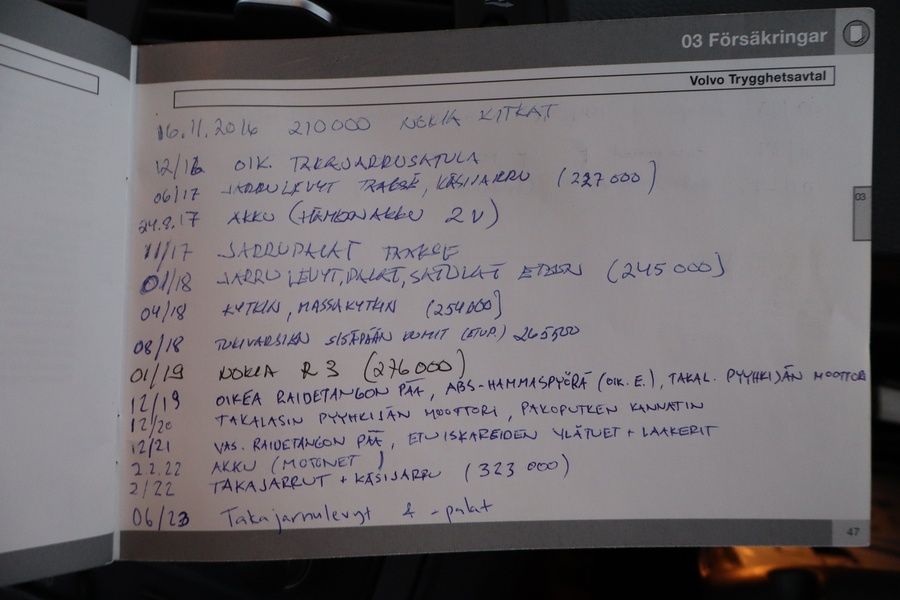 03 Försäkringar
Volvo Trygghetsavtal
16.11.2016 210000 NOKIA KITKAT
12/16 OIK. TAKAJARRUSATULA
06/17 JARRULEVYT TAAKSE, KÄSIJARRU (227000)
24.8.17 AKKU (HÄMEEN AKKU 2V)
11/17 JARRUPALAT TAAKSE
03
01/18 JARRULEVYT, PALAT, SATULAT ETEEN (245000)
04/18 KYTKIN, MASSAKYTKIN (254000)
08/18 TUKIVARSIEN SISÄPÄÄN KUMIT (ETUP.) 265500
01/19 NOKIA R3 (276000)
12/19 OIKEA RAIDETANGON PÄÄ, ABS-HAMMASPYÖRÄ (OIK. E.), TAKAL. PYYHKIJÄN MOOTTORI
12/20 TAKALASIN PYYHKIJÄN MOOTTORI, PAKOPUTKEN KANNATIN
12/21 VAS. RAIDETANGON PÄÄ, ETUISKAREIDEN YLÄTUET + LAAKERIT
2.2.22 AKKU (MOTONET)
2/22 TAKAJARRUT + KÄSIJARRU (323 000)
06/23 Takajarrulevyt & -palat
47